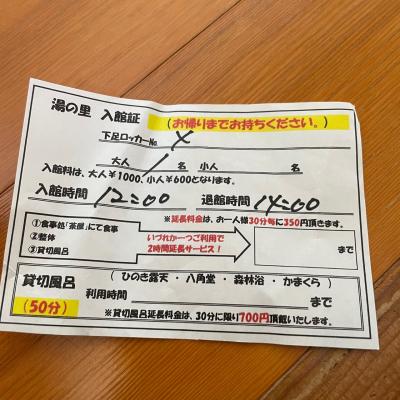 湯の里 入館証 (お帰りまでお持ちください。)
下足ロッカーNo. X
大人 1 名 小人 名
入館料は、大人¥1000、小人¥600となります。
入館時間 12:00 退館時間 14:00
※延長料金は、お一人様30分毎に350円頂きます。
①食事処「茶屋」にて食事
②整体
③貸切風呂
いづれか一つご利用で
2時間延長サービス!
まで
貸切風呂 (ひのき露天・八角堂・森林浴・かまくら)
(50分) 利用時間 まで
※貸切風呂延長料金は、30分に限り700円頂戴いたします。